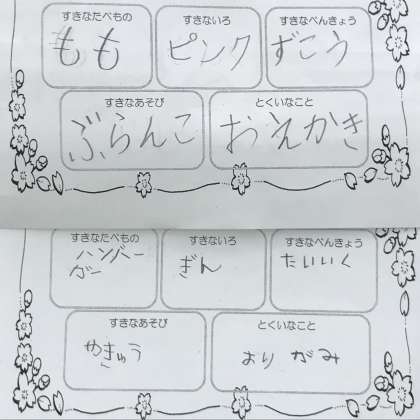 すきなたべもの すきないろ すきなべんきょう
もも ピンク ずこう
すきなあそび とくいなこと
ぶらんこ おえかき
すきなたべもの すきないろ すきなべんきょう
ハンバー
ガー ぎん たいいく
すきなあそび とくいなこと
やきゅう おりがみ